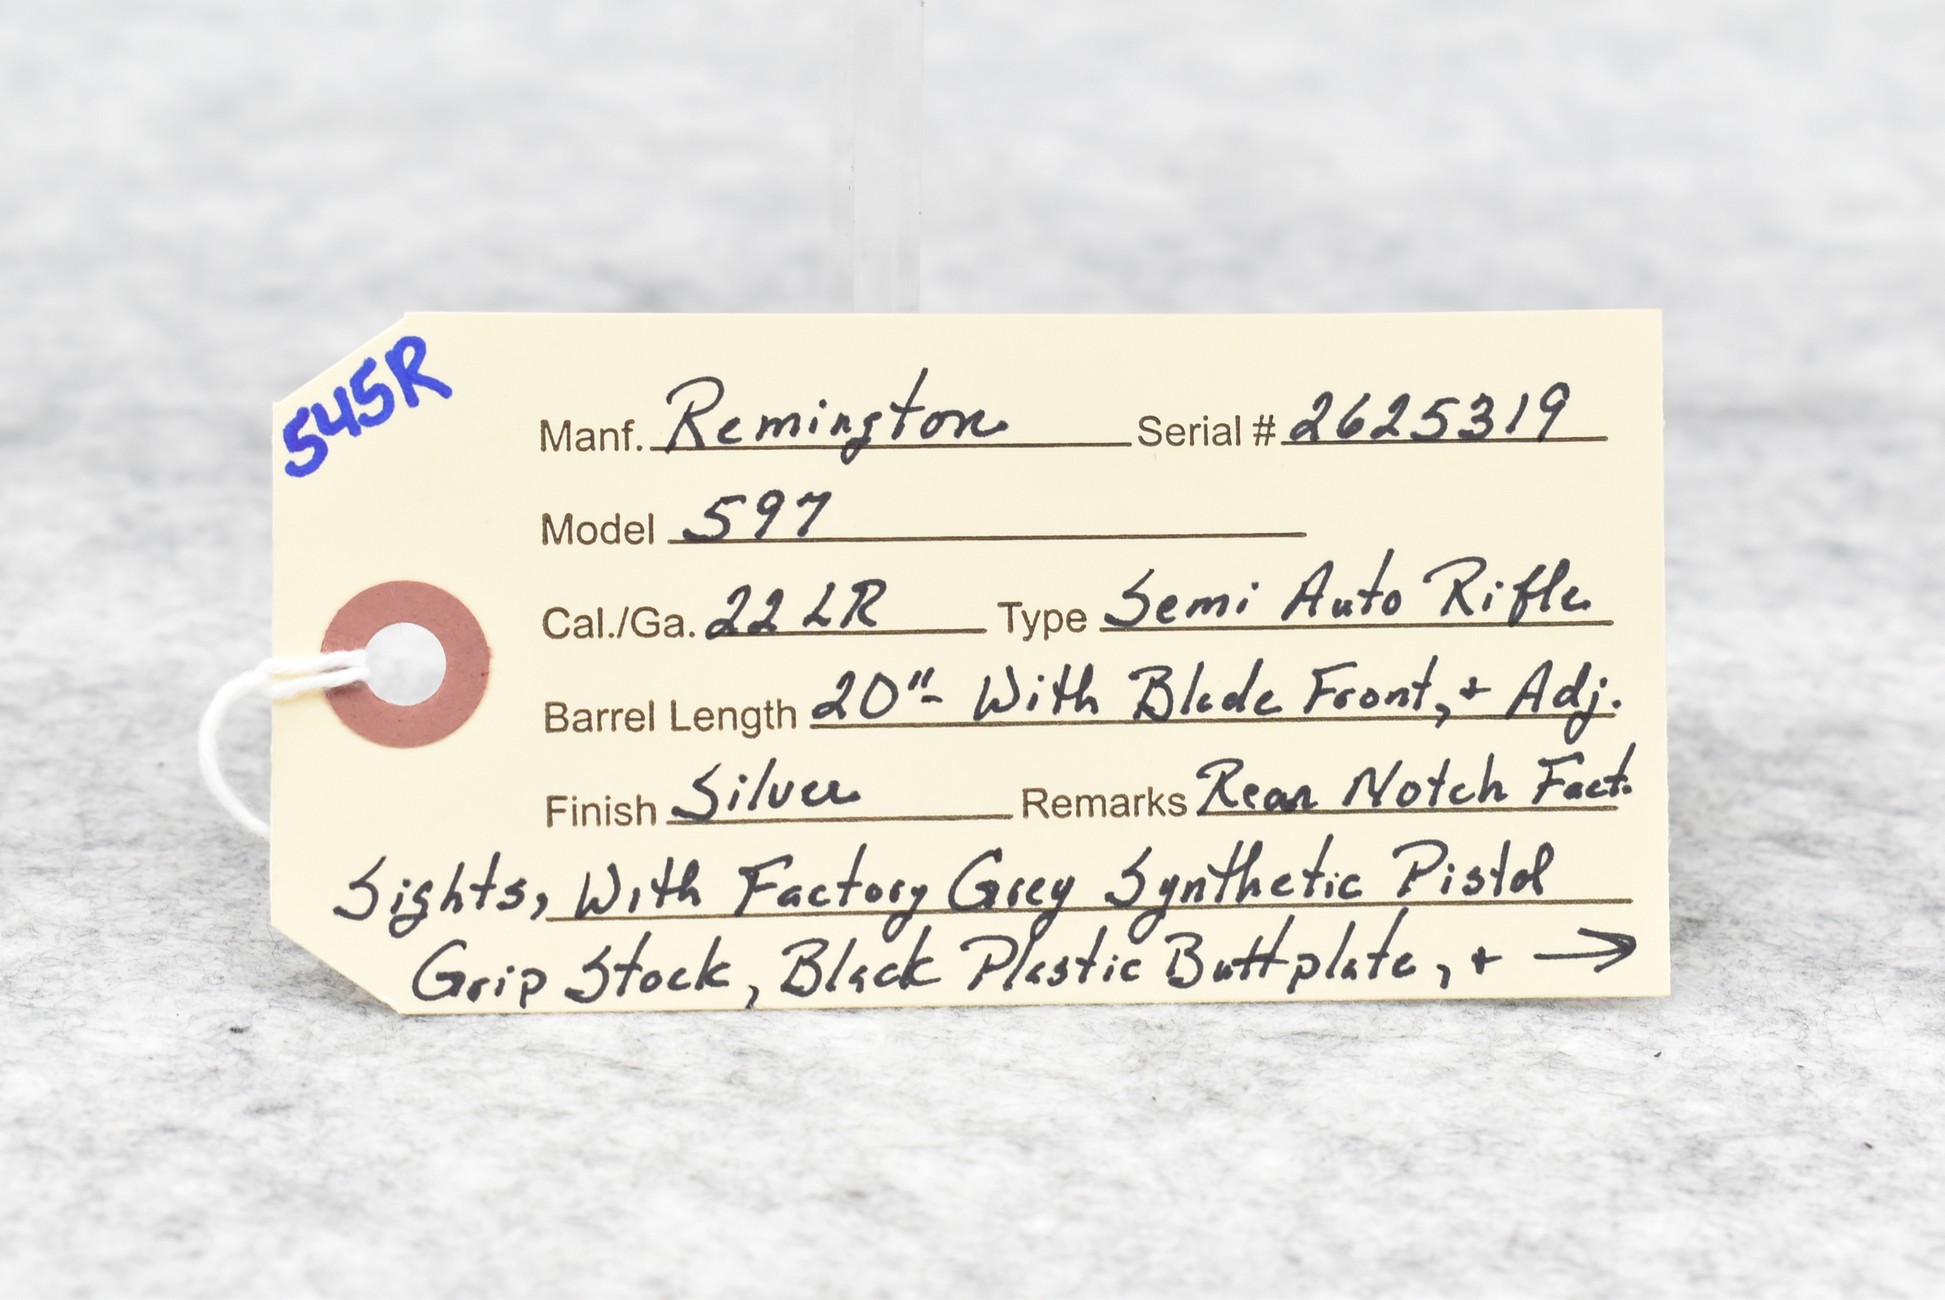 545R
Manf. Remington Serial # 2625319
Model 597
Cal./Ga. 22 LR Type Semi Auto Rifle
Barrel Length 20"- With Blade Front, + Adj.
Finish Silver Remarks Rear Notch Fact.
Sights, With Factory Grey Synthetic Pistol
Grip Stock, Black Plastic Buttplate, + →